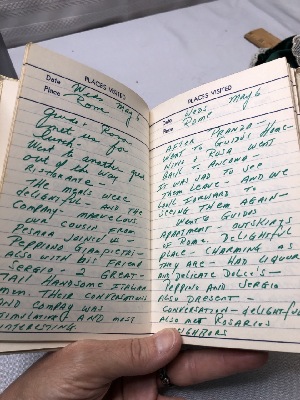 PLACES VISITED
Date Weds. May 6
Place Rome
Guido & Rosa
met us for
lunch.
Went to another great
out of the way
Ristorante. The
meals were
delightful and the
company - marvelous
our cousin from
Pesaro joined us -
Peppino
also with his friend
Sergio - 2 great -
tall handsome Italian
men. Their conversations
and company was
stimulating and most
interesting.
PLACES VISITED
Date Weds. May 6
Place Rome
After pranzo -
went to Guido's home -
Nino & Rosa went
back to Ancona -
It was sad to see
them leave - and we
look forward to
seeing them again -
Went to Guidos
apartment - outskirts
of Rome. Delightful
place - charming as
they are - had liquor
and delicate dolci's -
Peppino and Sergio
also present -
conversation - delightful
also met Rosarios
neighbors